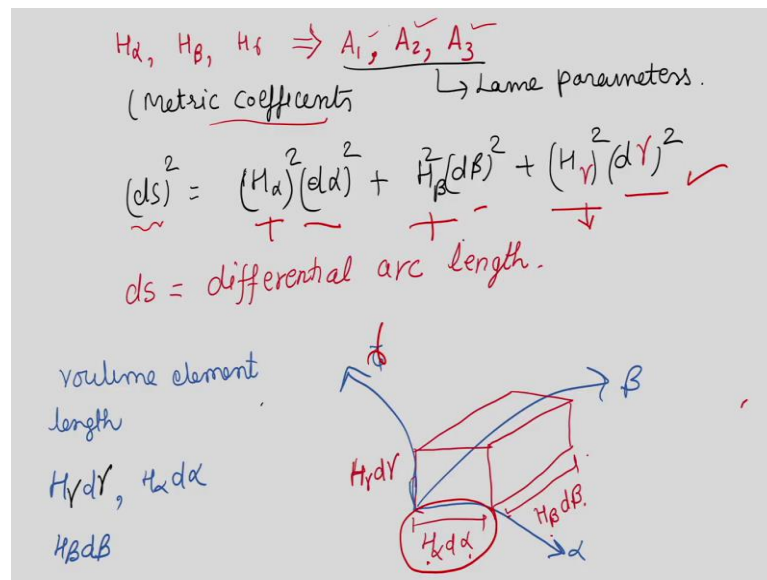 Hα, Hβ, Hγ ⇒ A₁, A₂, A₃
(Metric coefficents
↳ Lame parameters.
(ds)² = (Hα)²(dα)² + Hβ²(dβ)² + (Hγ)²(dγ)²
ds = differential arc length.
voulume element
length
Hγdγ, Hαdα
Hβdβ
β
Hγdγ
Hβdβ.
Hαdα
α